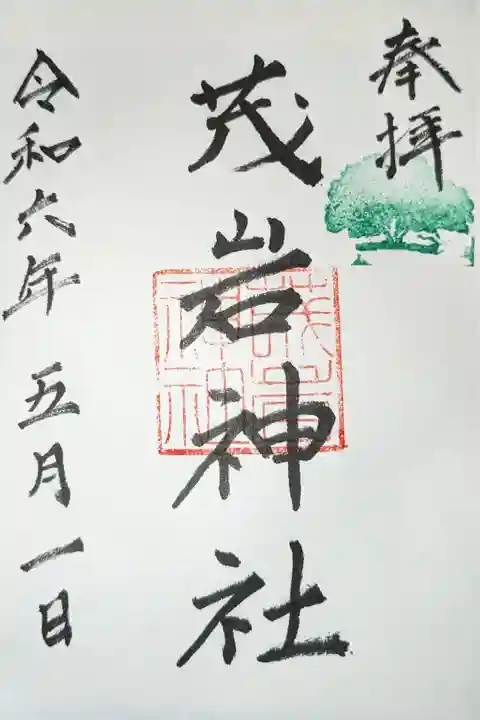 奉拝
茂岩神社
茂岩
神社
令和六年五月一日